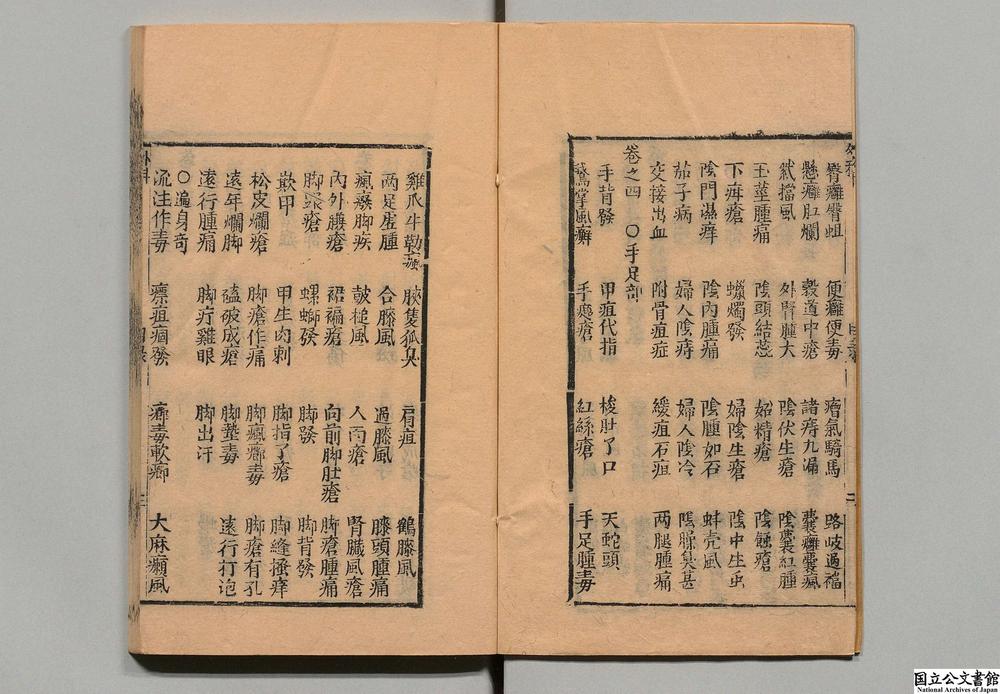 臀癰臀蛆 便癰便毒 瘡氣騎馬 路岐過襠
懸癰肛爛 穀道中瘡 諸痔九漏 囊癰囊瘋
弒擋風 外腎腫大 陰伏生瘡 陰囊紅腫
玉莖腫痛 陰頭結蕊 妬精瘡 陰蝕瘡
下疳瘡 蠟燭發 婦陰生瘡 陰中生虫
陰門濕痒 陰內腫痛 陰腫如石 蚌壳風
茄子病 婦人陰痔 婦人陰冷 陰臊臭甚
交接出血 附骨疽症 緩疽石疽 兩腿腫痛
卷之四 〇手足部
手背發 甲疽代指 梭肚了口 天蛇頭
鵞掌風癬 手瘂瘡 紅絲瘡 手足腫毒
雞爪牛勒 腋隻狐臭 肩疽 鶴膝風
兩足虛腫 合膝風 過膝風 膝頭腫痛
瘋癢脚疾 皷槌風 人面瘡 腎臟風瘡
內外臁瘡 裙褊瘡 向前脚肚瘡 脚瘡腫痛
脚瘡 螺螄發 脚發 脚背發
嵌甲 甲生肉刺 脚指了瘡 脚縫搔痒
松皮爛瘡 脚瘡作痛 脚瘋癤毒 脚瘡有孔
遠年爛脚 磕破成瘡 脚墊毒 遠行打泡
遠行腫痛 脚疔雞眼 脚出汗
〇遍身奇
流注作毒 瘭疽痼發 癤毒軟癤 大麻癩風
国立公文書館
National Archives of Japan